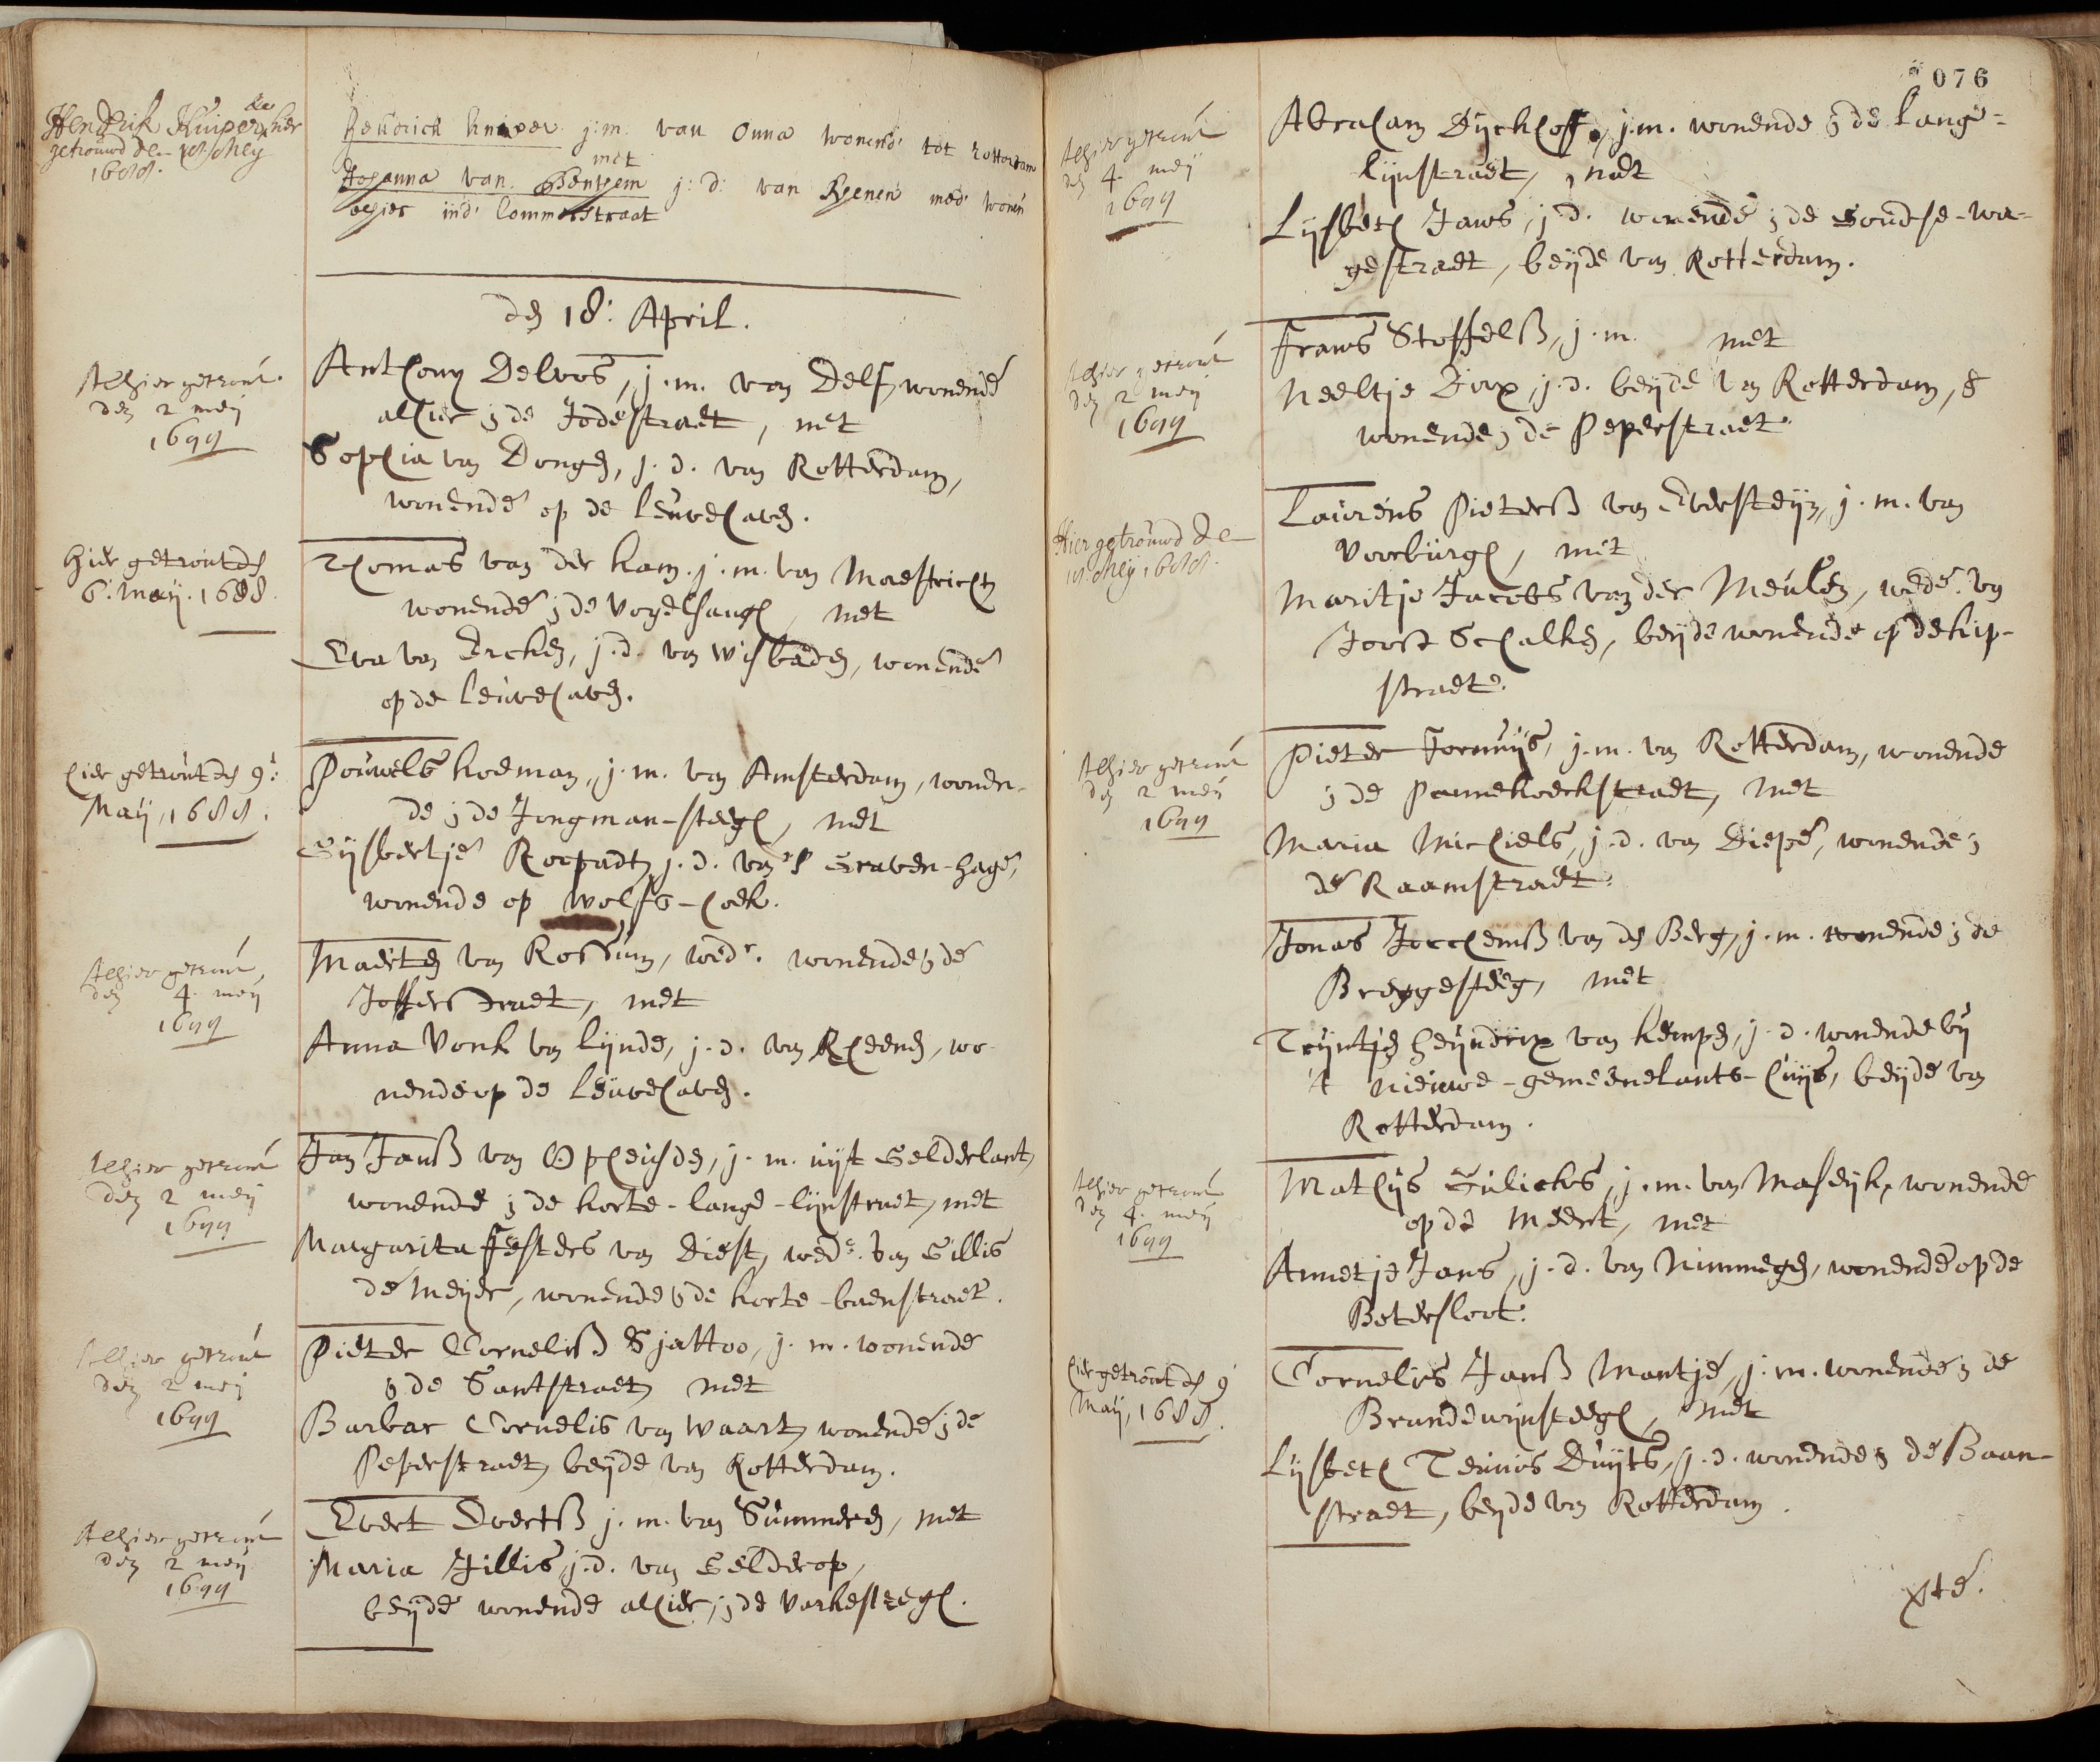 Hendrik Kuiper hier
getrouwd de 18 Meij
1688.
Hendrick Kuiper j:m: van Onna wonend' tot Rotterdam
met
Johanna van Bentsem j:d: van Rhenen med' wonen
alhier ind' Lommerstraat
den 18: April.
Alhier getrout
den 2 meij
1688
Anthony Delvos, j.m. van Delf, wonende
alhier in de Jodestraet, met
Sophia van Dongen, j.d. van Rotterdam,
wonende op de Leuvehaven.
hier getrout den
6: Maij. 1688.
Thomas van der Kam. j.m. van Maestricht
wonende in de Vogelsangh, met
Eva van Ercken, j.d. van Wisbaden, wonende
op de Leuvehaven.
hier getrout den 9:
Maij, 1688.
Pouwels Koeman, j.m. van Amsterdam, wonen-
de in de Jongman-steegh, met
Gijsbertje Roepadt, j.d. van 's Graven-hage,
wonende op Wolfs-hoek.
Alhier getrout,
den 4. meij
1688
Maerten van Rossum, wedr. wonende in de
Jofferstraet, met
Anna Vonk van Lynde, j.d. van Rheenen, wo-
nende op de Leuvehaven.
Alhier getrout
den 2 meij
1688
Jan Janß van Opheusden, j.m. uijt Gelderlant,
wonende in de korte-lange-lijnstraet, met
Margarita Festers van Diest, wede. van Gillis
de Meyer, wonende in de korte-baenstraet.
Alhier getrout
den 2 meij
1688
Pieter Corneliß Sjattoo, j.m. wonende
in de Santstraet, met
Barbar Cornelis van Waart, wonende in de
Peperstraet, beijde van Rotterdam.
Alhier getrout
den 2 meij
1688
Evert Evertß j.m. van Summeren, met
Maria Jillis, j.d. van Gelderop,
beijde wonende alhier, in de Varkestegh.
076
Alhier getrout
den 4. meij
1688
Abraham Dyckhoff, j.m. wonende in de Lange-
lijnstraet, met
Lijsbeth Jans, j.d. wonende in de Goudse-wa-
gestraet, beijde van Rotterdam.
Alhier getrout
den 2 meij
1688
Frans Stoffelß, j.m. met
Neeltje Dirx, j.d. beijde van Rotterdam, &
wonende in de Peperstraet.
Hier getrouwd de
18 Meij 1688.
Laurens Pieterß van Eversteijn, j.m. van
Voorburgh, met
Maritje Jacobs van der Meulen, wede. van
Joost Schalken, beijde wonende op de kip-
straet.
Alhier getrout
den 2 meij
1688
Pieter Formijs, j.m. van Rotterdam, wonende
in de Pannekoeckstraet, met
Maria Michiels, j.d. van Diepe, wonende in
de Raamstraet.
Jonas Jochemß van den Berg, j.m. wonende in de
Breggesteeg, met
Trijntje Heijndrix van Kempen, j.d. wonende bij
't nieuwe-gemeenelants-huijs, beijde van
Rotterdam.
Alhier getrout
den 4. meij
1688
Mathijs Gulickes, j.m. van Maseyk, wonende
op de Meert, met
Annetje Jans, j.d. van Nimmegen, wonende op de
Botersloot.
hier getrout den 9
Maij, 1688.
Cornelis Janß Mantje, j.m. wonende in de
Brandewijnsteegh, met
Lijsbeth Teunis Duijts, j.d. wonende in de Baan-
straet, beyde van Rotterdam.